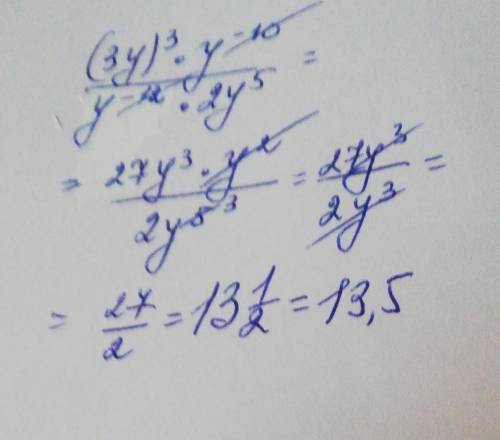 (3y)³ · y⁻¹⁰ / y⁻¹² · 2y⁵ =
= 27y³ · y² / 2y⁵ ³ = 27y³ / 2y³ =
= 27/2 = 13 1/2 = 13,5